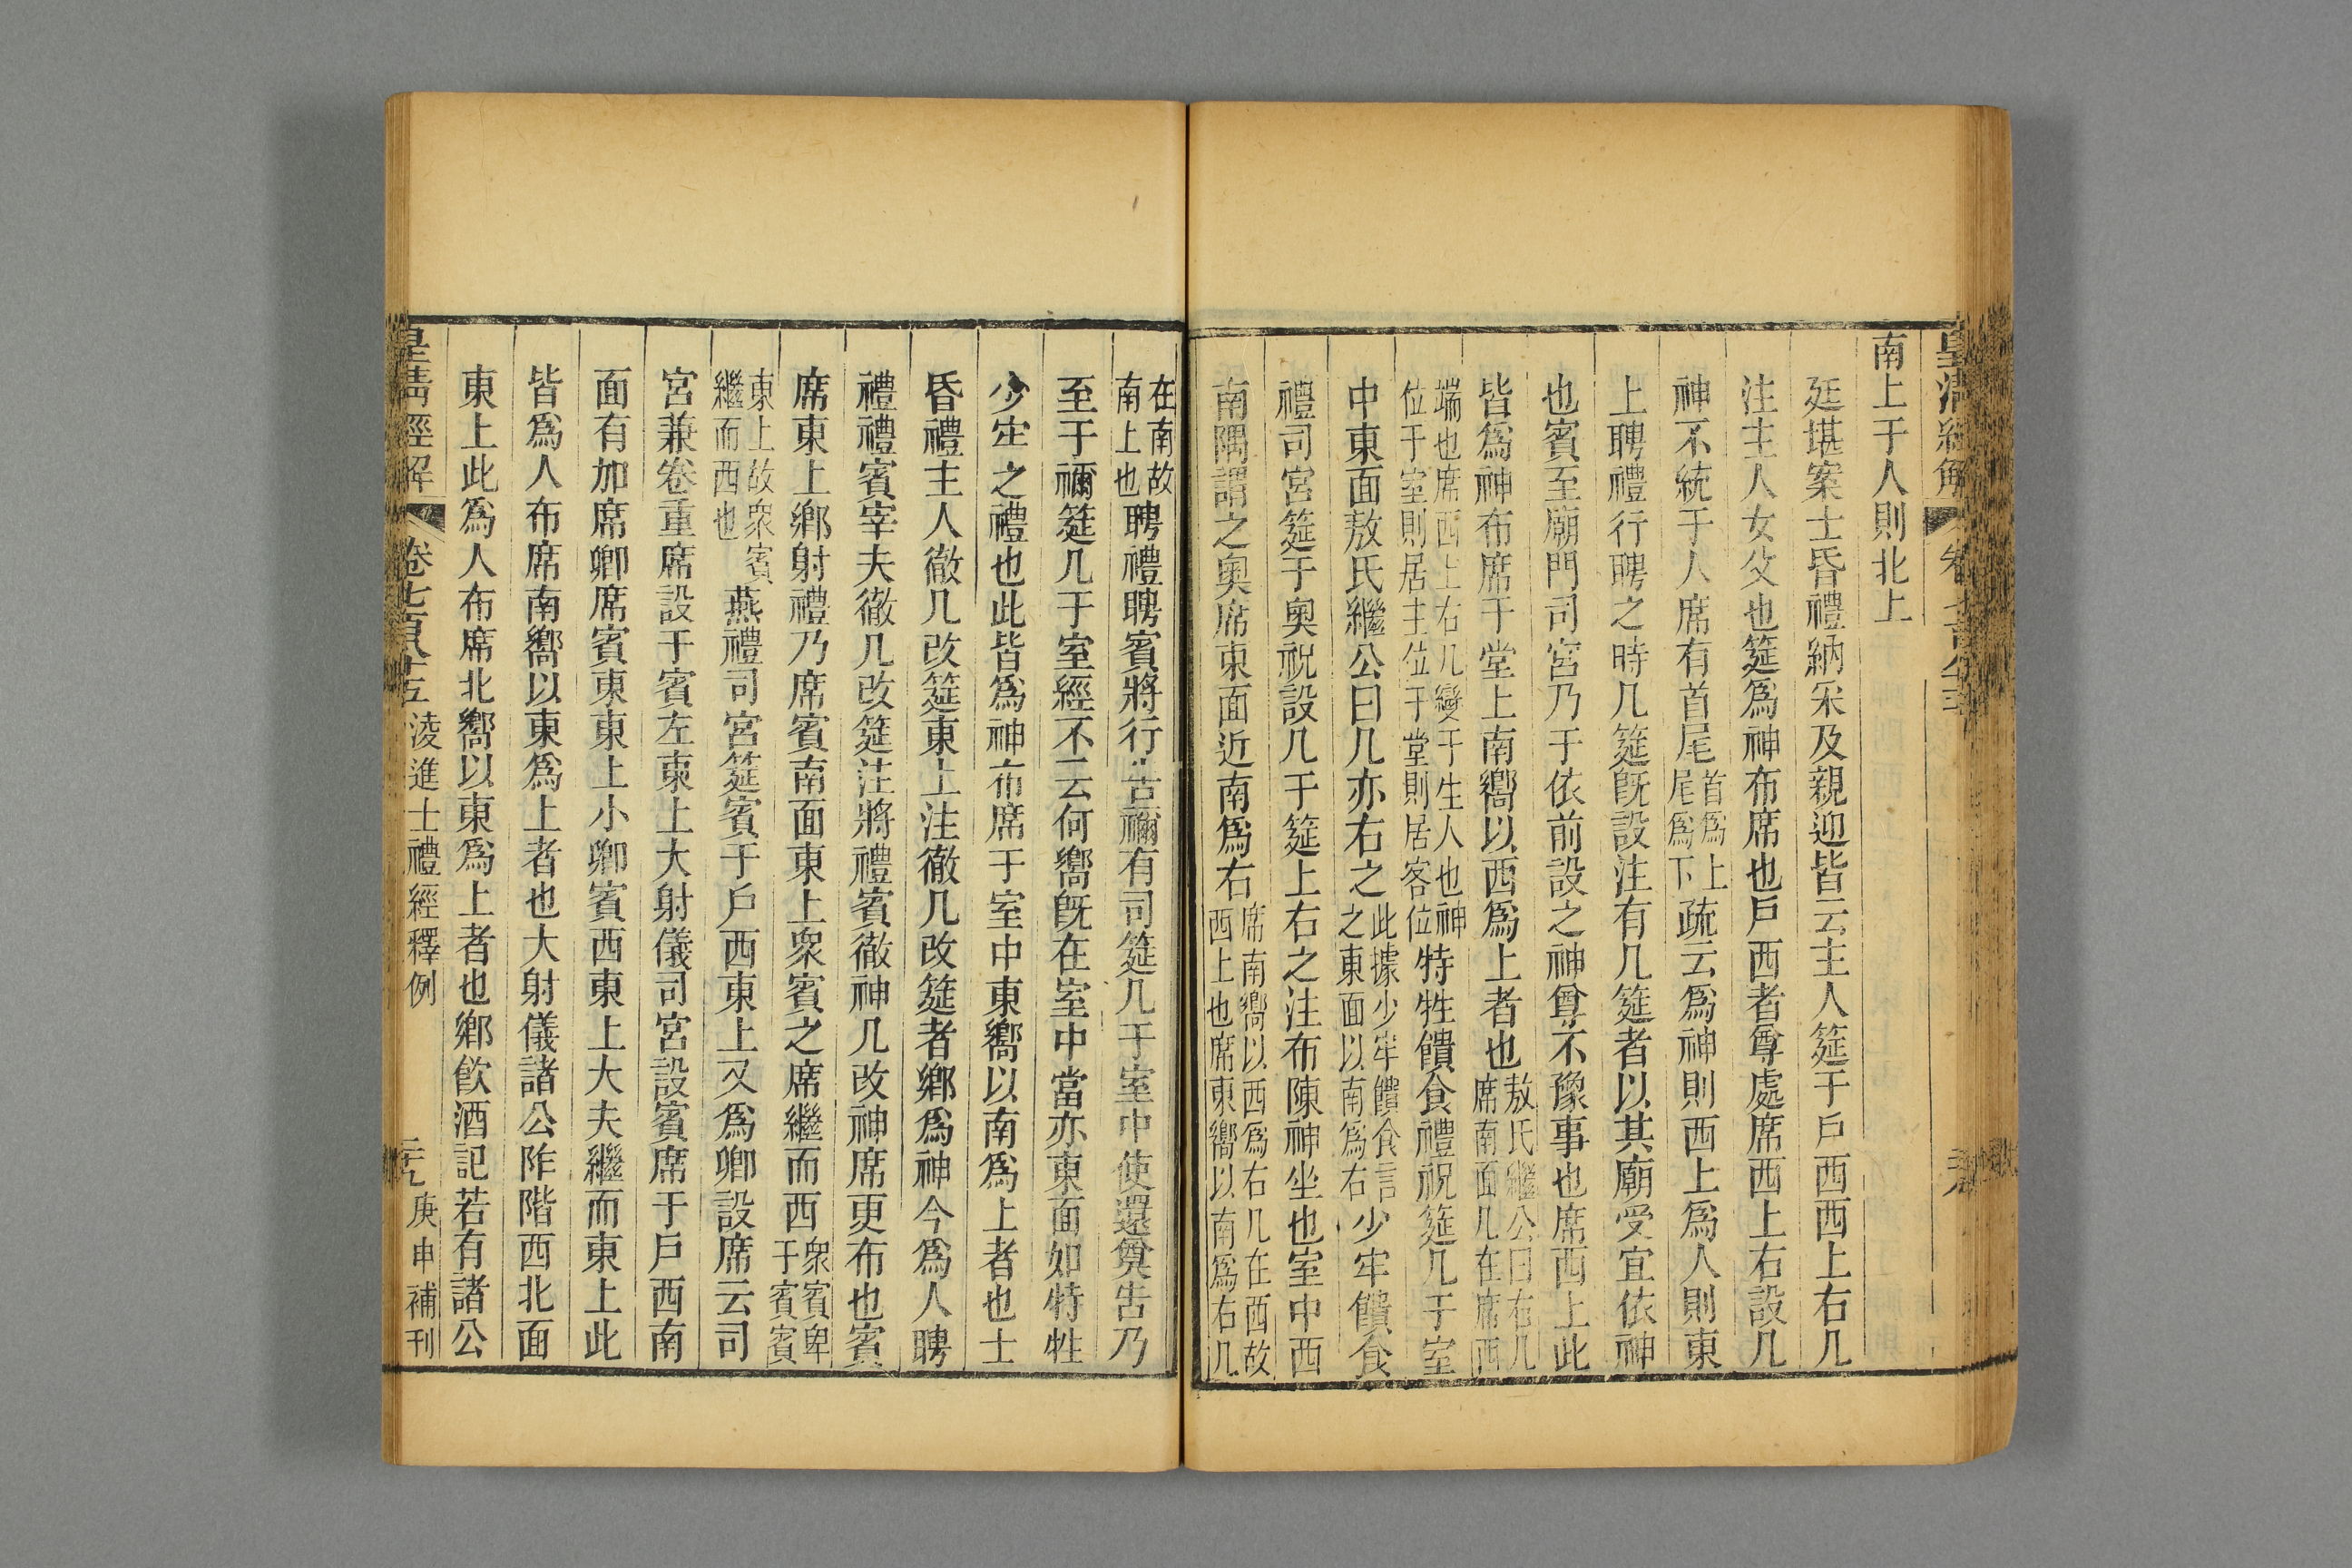 南上于人則北上
廷堪案士昏禮納采及親迎皆云主人筵于戶西西上右几
注主人女父也筵爲神布席也戶西者尊處席西上右設几
神不統于人席有首尾首爲上尾爲下疏云爲神則西上爲人則東
上聘禮行聘之時几筵旣設注有几筵者以其廟受宜依神
也賓至廟門司宮乃于依前設之神尊不豫事也席西上此
皆爲神布席于堂上南嚮以西爲上者也敖氏繼公曰右几席南面几在席西
端也席西上右几變于生人也神位于室則居主位于堂則居客位特牲饋食禮祝筵几于室
中東面敖氏繼公曰几亦右之此據少牢饋食言之東面以南爲右少牢饋食
禮司宮筵于奧祝設几于筵上右之注布陳神坐也室中西
南隅謂之奧席東面近南爲右席南嚮以西爲右几在西故西上也席東嚮以南爲右几
在南故南上也聘禮聘賓將行告禰有司筵几于室中使還奠告乃
至于禰筵几于室經不云何嚮旣在室中當亦東面如特牲
少牢之禮也此皆爲神布席于室中東嚮以南爲上者也士
昏禮主人徹几改筵東上注徹几改筵者鄉爲神今爲人聘
禮禮賓宰夫徹几改筵注將禮賓徹神几改神席更布也賓
席東上鄉射禮乃席賓南面東上衆賓之席繼而西衆賓卑于賓賓
東上故衆賓繼而西也燕禮司宮筵賓于戶西東上又爲卿設席云司
宮兼卷重席設于賓左東上大射儀司宮設賓席于戶西南
面有加席卿席賓東東上小卿賓西東上大夫繼而東上此
皆爲人布席南嚮以東爲上者也大射儀諸公阼階西北面
東上此爲人布席北嚮以東爲上者也鄉飮酒記若有諸公
皇淸經解 卷七百八十五 淩進士禮經釋例 庚申補刊